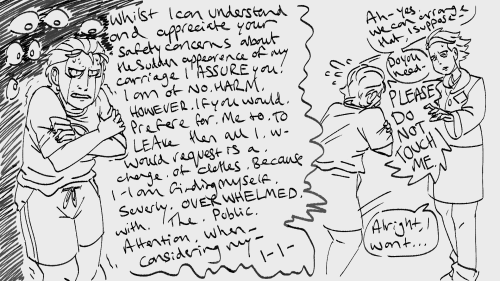 Whilst I can understand
and appreciate your
safety concerns about
the sudden appearence of my
carriage I ASSURE YOU!
I am of NO. HARM.
HOWEVER. If you would.
Prefere for. Me to. TO
LEAve then all I. w-
would request is a.
change. of clothes. Because
I-I am finding myself.
Severly. OVERWHELMED.
with. The. Public.
Attention. when-
considering my-
I-I-
Ah- Yes,
we can arrange
that, I suppose-
Do you
need-
PLEASE
DO
NOT
TOUCH
ME.
Alright, I
wont...